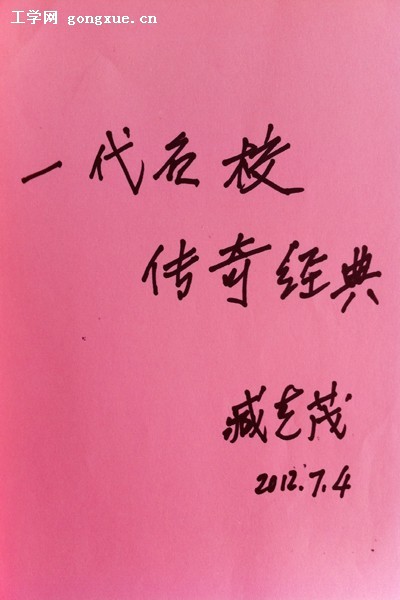 工学网 gongxue.cn
一代名校
传奇经典
臧志茂
2012.7.4